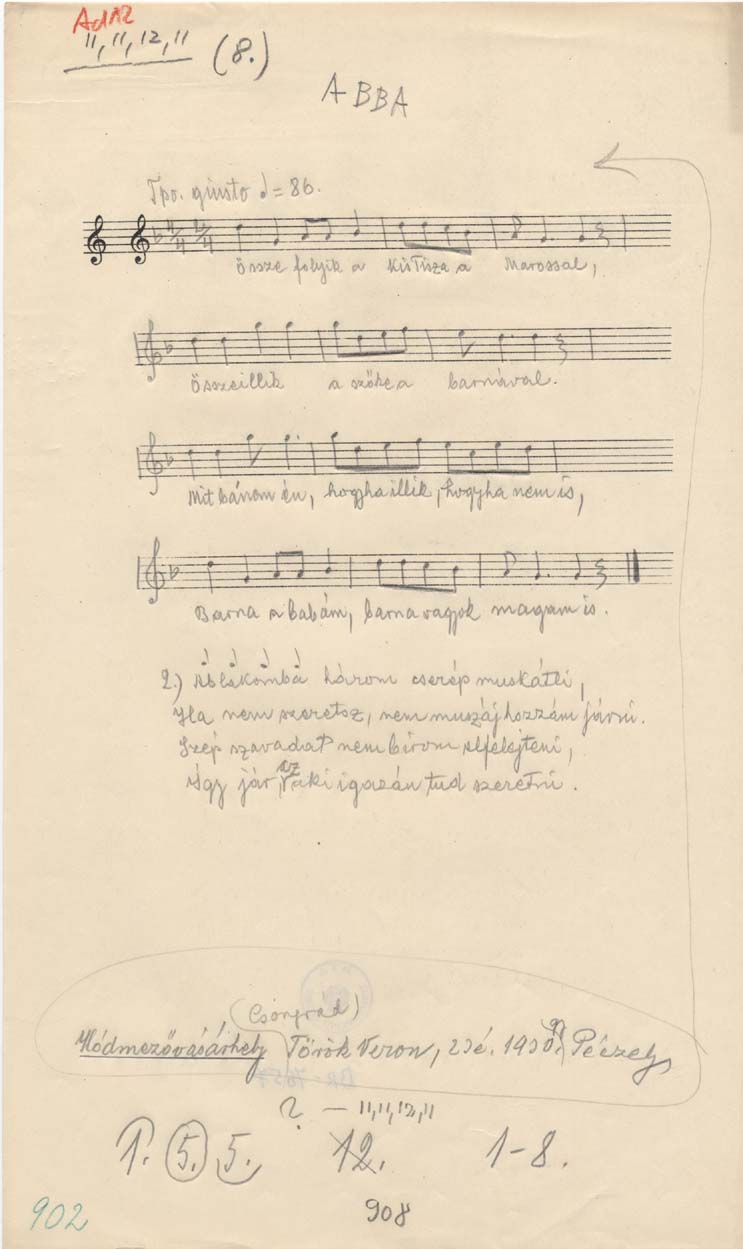 Ad12
11, 11, 12, 11 (8.)
ABBA
Tpo. giusto ♩= 86.
össze folyik a kis Tisza a Marossal,
Összeillik a szőke a barnával.
Mit bánom én, hogyha illik, hogyha nem is,
Barna a babám, barna vagyok magam is.
2.) Ablakomba három cserép muskátli,
Ha nem szeretsz, nem muszáj hozzám járni.
Szép szavadat nem birom elfelejteni,
Így jár, az aki igazán tud szeretni.
(Csongrád)
Hódmezővásárhely Török Veron, 23 é. 1930. Péczely
? — 11, 11, 12, 11
1. 5. 5. 12. 1-8.
902 908